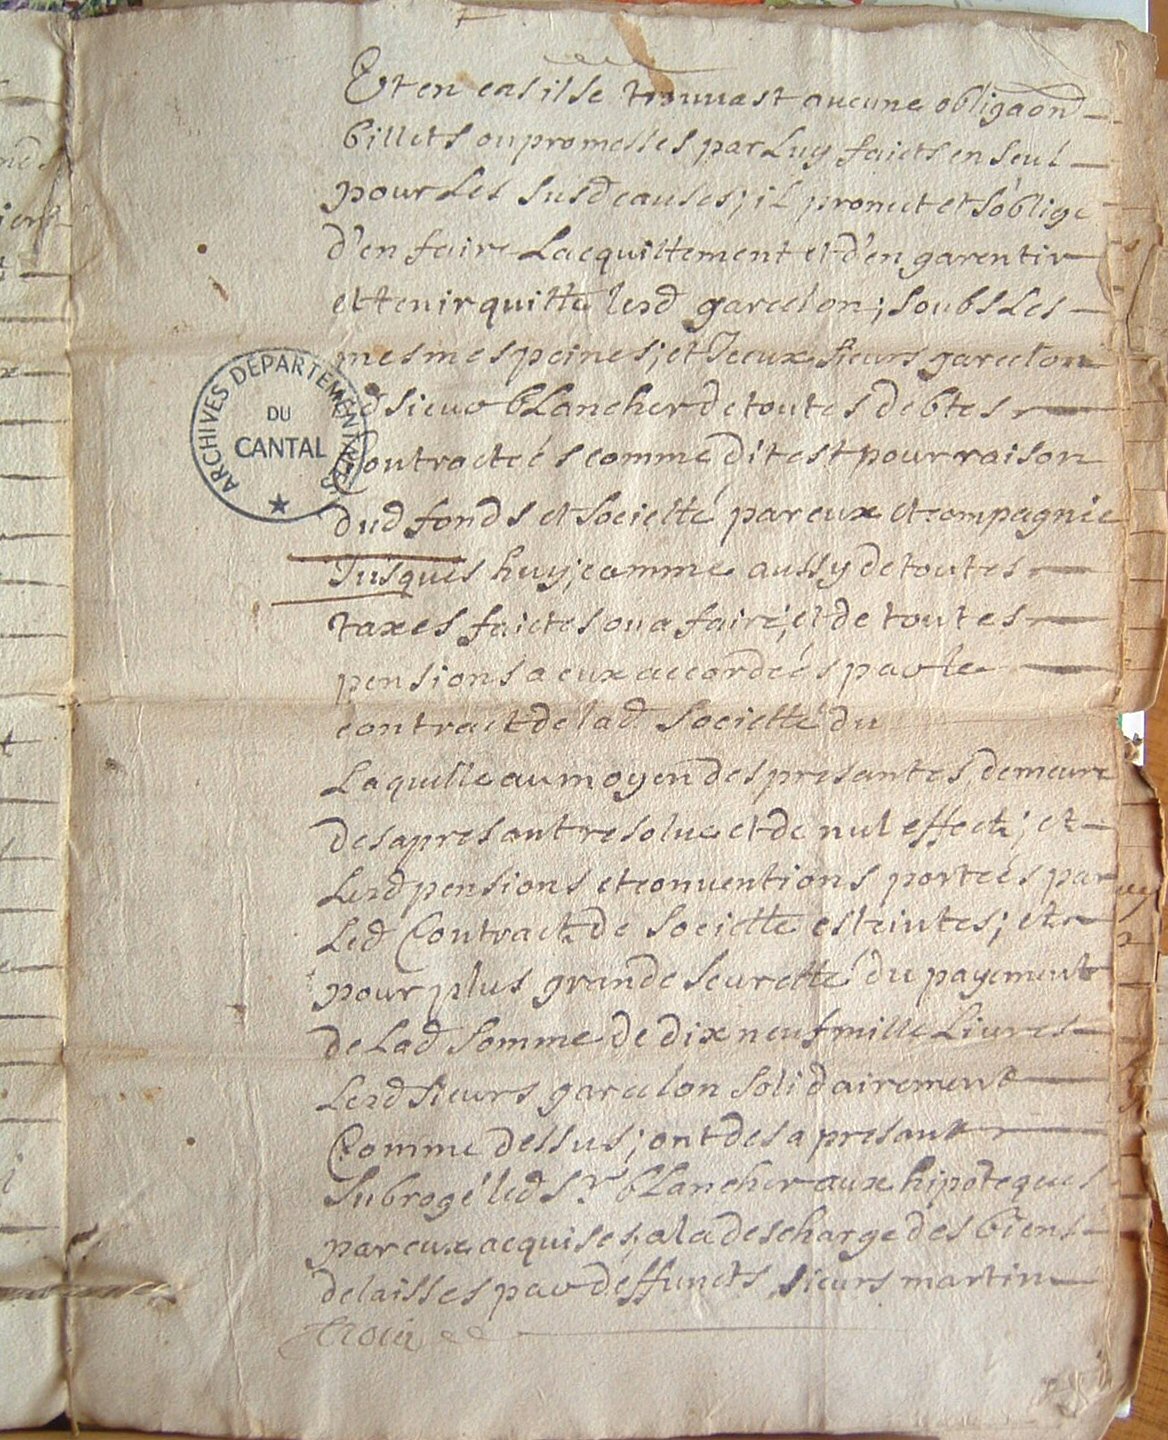 Et en cas il se trouvast aucune obligaon
billets ou promesses par Luy faicts en seul
pour Les susd causes; il promet et s'oblige
d'en faire Lacquittement et d'en garentir
et tenir quitte lesd garcelon; soubs Les
mesmes peines; et Iceux sieurs garcelon
led sieur bLancher de toutes debtes
Contractéés comme dit est pour raison
dud fonds et societté par eux et compagnie
Jusques huy; comme aussy de toutes
taxes faictes ou a faire; et de toutes
pensions a eux accordéés par le
contract de lad societté du
Laquelle au moyen des presantes, demeure
des a presant resolue et de nul effect; et
Lesd pensions et conventions portéés par
Led Contract de societte esteintes; et
pour plus grande seuretté du payement
de Lad somme de dix neuf mille Livres
Lesd sieurs garcelon solidairement
Comme dessus; ont des a presant
subrogé led sr bLancher aux hipoteques
par eux acquises, a la descharge des biens
delaisses par deffuncts sieurs martin
ARCHIVES DÉPARTEMENTALES
DU
CANTAL